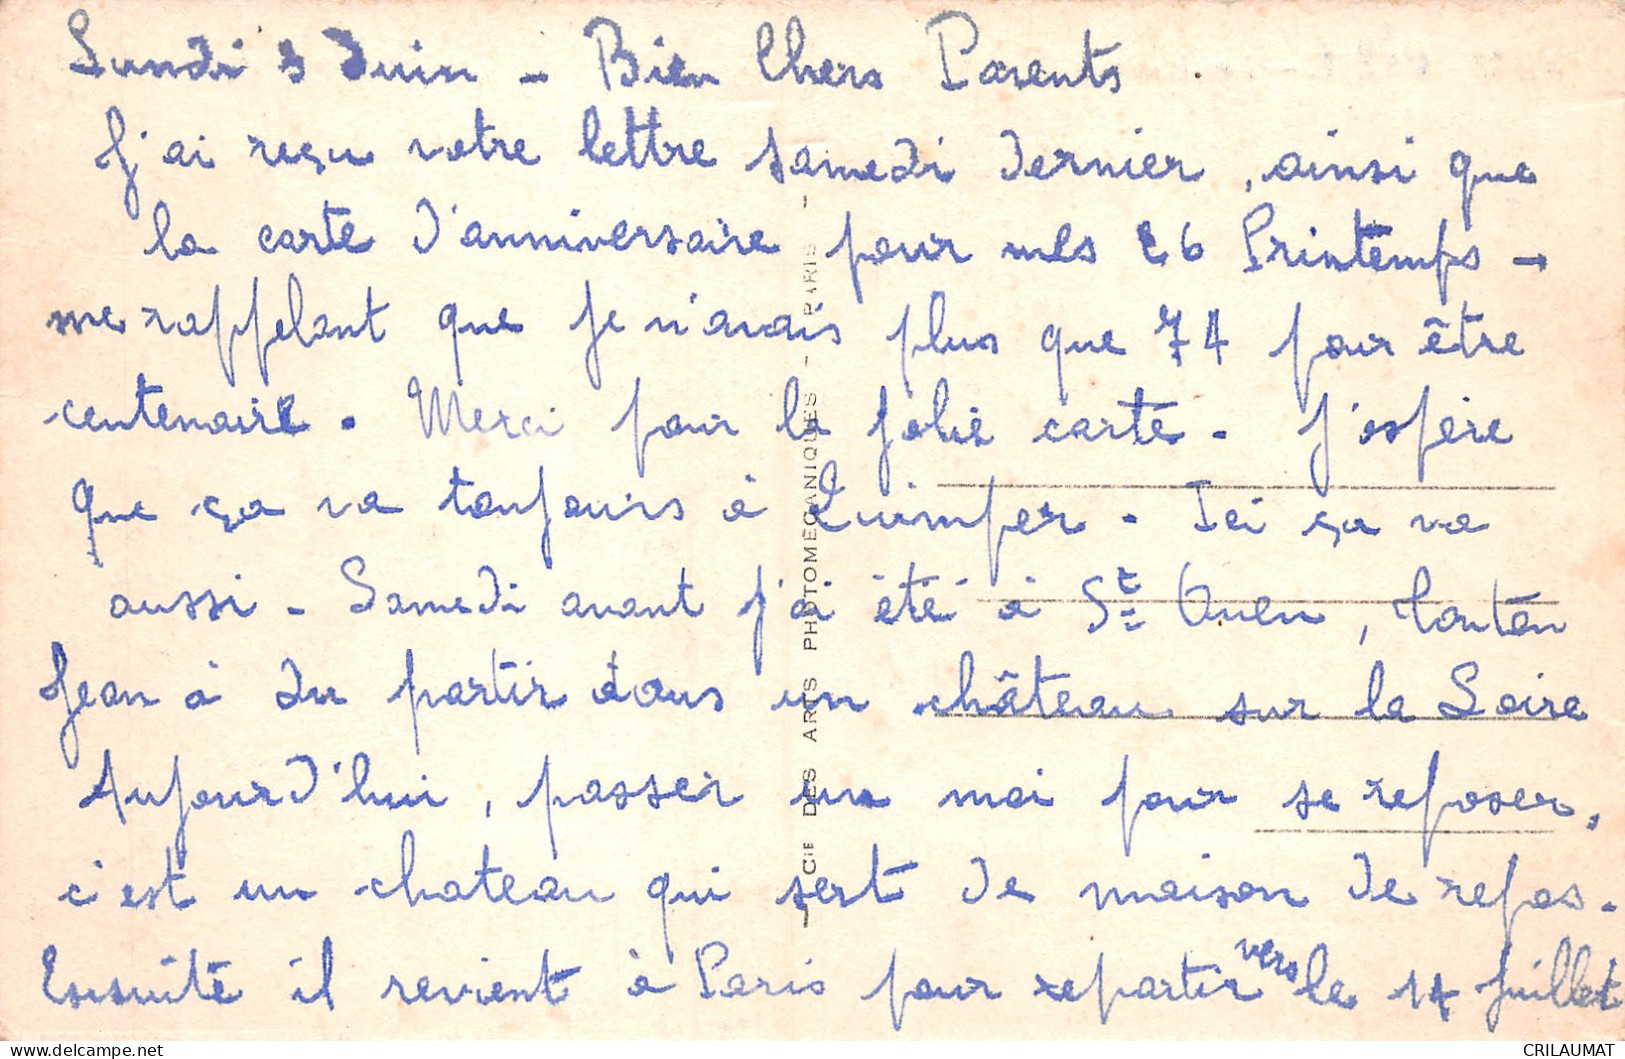 Lundi 3 Juin - Bien Chers Parents
J'ai reçu votre lettre samedi dernier, ainsi que
la carte d'anniversaire pour mes 26 Printemps -
me rappelant que je n'avais plus que 74 pour être
centenaire. Merci pour la jolie carte. J'espère
que ça va toujours à Quimper. Ici ça va
aussi - Samedi avant j'ai été à St Ouen, Tonton
Jean à du partir dans un château sur la Loire
Aujourd'hui, passer un moi pour se reposer,
c'est un chateau qui sert de maison de repos.
Ensuite il revient à Paris pour repartir vers le 14 Juillet
CIE DES ARTS PHOTOMECANIQUES - PARIS -
CRILAUMAT